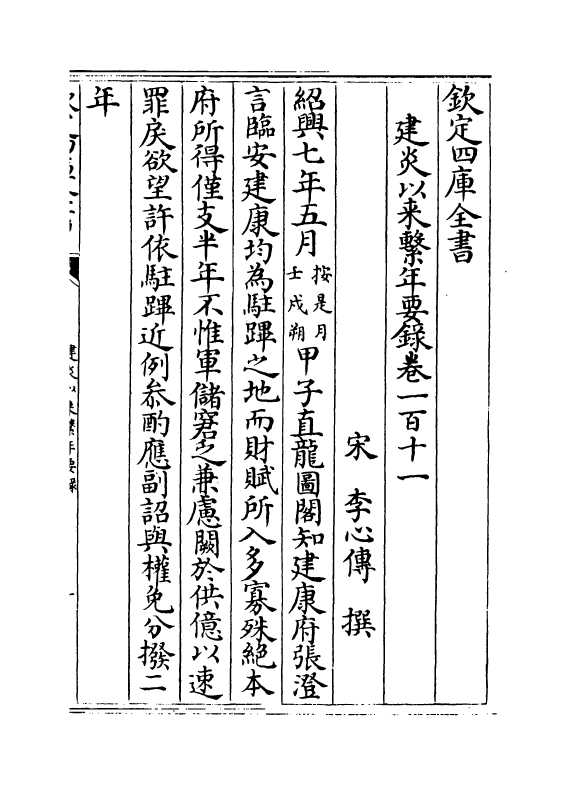 欽定四庫全書
建炎以来繫年要錄卷一百十一
宋 李心傳 撰
紹興七年五月按是月壬戌朔甲子直龍圖閣知建康府張澄
言臨安建康均為駐蹕之地而財賦所入多寡殊絕本
府所得僅支半年不惟軍儲窘乏兼慮闕於供億以速
罪戾欲望許依駐蹕近例叅酌應副詔與權免分撥二
年
建炎以来繫年要錄
一